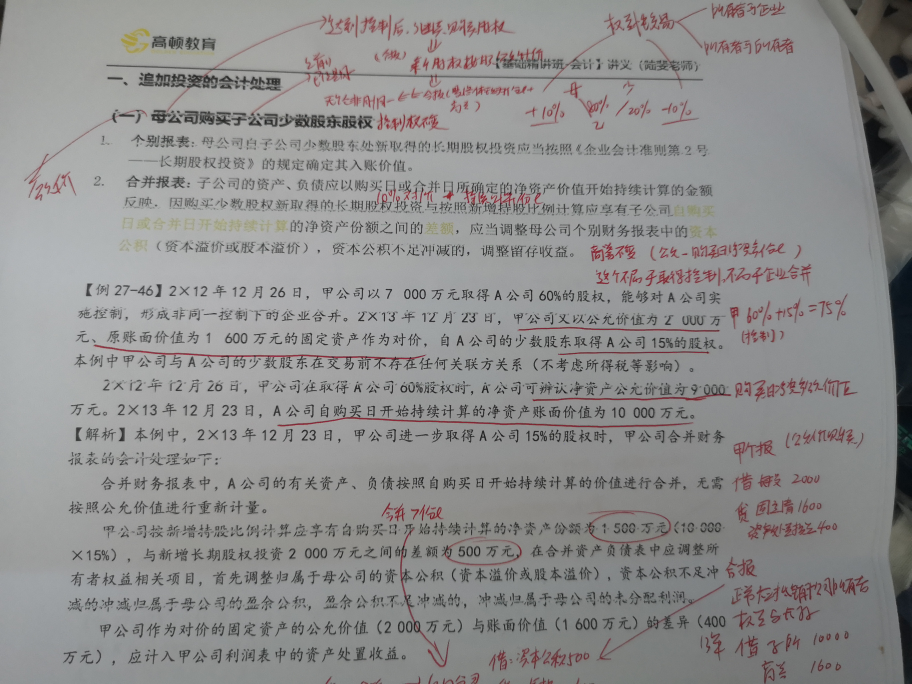 高顿教育
【基础精讲班-会计】讲义（陆斐老师）
权益交易
一、追加投资的会计处理
（一）母公司购买子公司少数股东股权 控制权不变
+10% 80% / 20% -10%
1. 个别报表：母公司自子公司少数股东处新取得的长期股权投资应当按照《企业会计准则第2号
——长期股权投资》的规定确定其入账价值。
2. 合并报表：子公司的资产、负债应以购买日或合并日所确定的净资产价值开始持续计算的金额
反映。因购买少数股权新取得的长期股权投资与按照新增持股比例计算应享有子公司自购买
日或合并日开始持续计算的净资产份额之间的差额，应当调整母公司个别财务报表中的资本
公积（资本溢价或股本溢价），资本公积不足冲减的，调整留存收益。
商誉不变
这个不属于取得控制，不属于企业合并
【例 27-46】2×12 年 12 月 26 日，甲公司以 7 000 万元取得 A 公司 60%的股权，能够对 A 公司实
施控制，形成非同一控制下的企业合并。2×13 年 12 月 23 日，甲公司又以公允价值为 2 000 万
元、原账面价值为 1 600 万元的固定资产作为对价，自 A 公司的少数股东取得 A 公司 15%的股权。
本例中甲公司与 A 公司的少数股东在交易前不存在任何关联方关系（不考虑所得税等影响）。
甲 60%+15%=75%
（控制）
2×12 年 12 月 26 日，甲公司在取得 A 公司 60%股权时，A 公司可辨认净资产公允价值为 9 000
万元。2×13 年 12 月 23 日，A 公司自购买日开始持续计算的净资产账面价值为 10 000 万元。
【解析】本例中，2×13 年 12 月 23 日，甲公司进一步取得 A 公司 15%的股权时，甲公司合并财务
报表的会计处理如下：
合并财务报表中，A 公司的有关资产、负债按照自购买日开始持续计算的价值进行合并，无需
按照公允价值进行重新计量。
甲公司按新增持股比例计算应享有自购买日开始持续计算的净资产份额为 1 500 万元（10 000
×15%），与新增长期股权投资 2 000 万元之间的差额为 500 万元，在合并资产负债表中应调整所
有者权益相关项目，首先调整归属于母公司的资本公积（资本溢价或股本溢价），资本公积不足冲
减的冲减归属于母公司的盈余公积，盈余公积不足冲减的，冲减归属于母公司的未分配利润。
甲公司作为对价的固定资产的公允价值（2 000 万元）与账面价值（1 600 万元）的差异（400
万元），应计入甲公司利润表中的资产处置收益。
甲个报
借 长投 2000
贷 固定清 1600
资产处置损益 400
合报
借 子所 10000
商誉 1600
借：资本公积 500